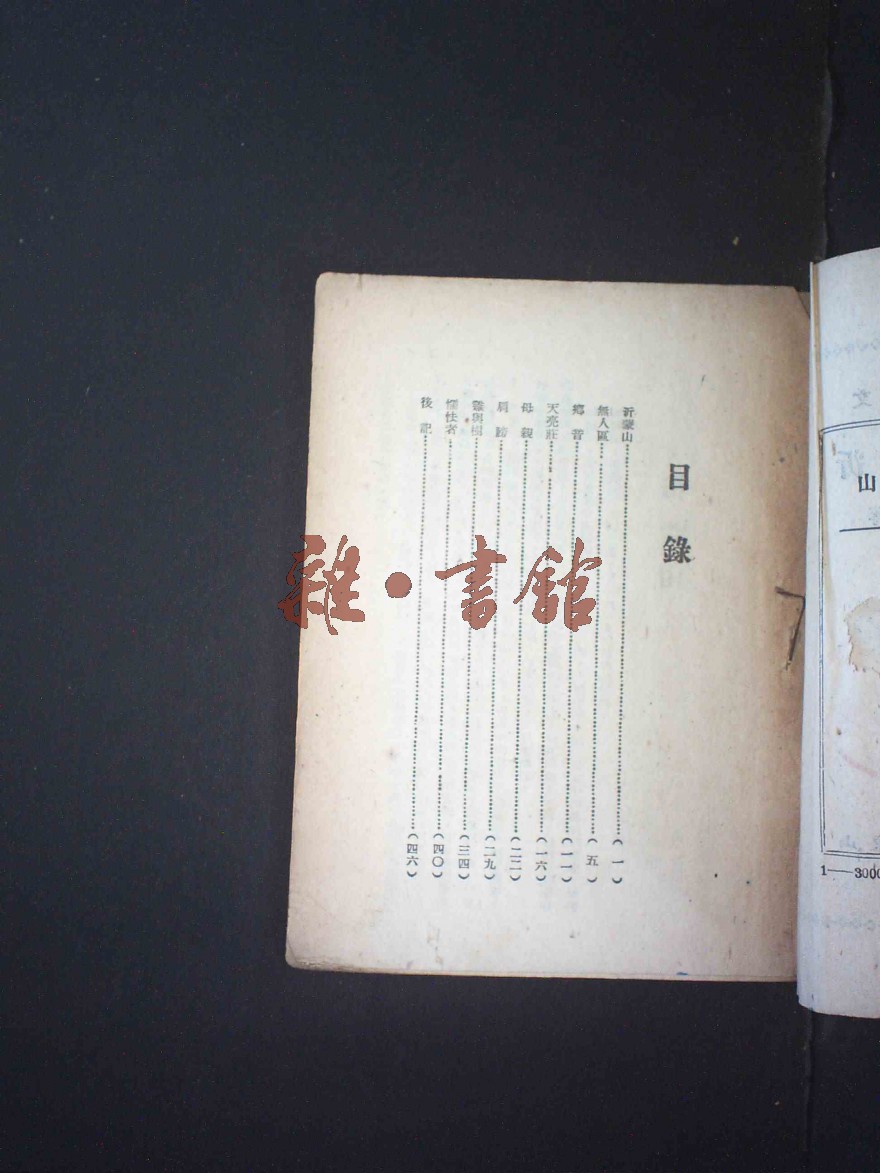 目錄
沂蒙山……(一)
無人區……(五)
鄉音……(一一)
天亮莊……(一六)
母親……(二二)
肩膀……(二九)
……(三四)
懦怯者……(四〇)
後記……(四六)
雜·書館
山
1——3000